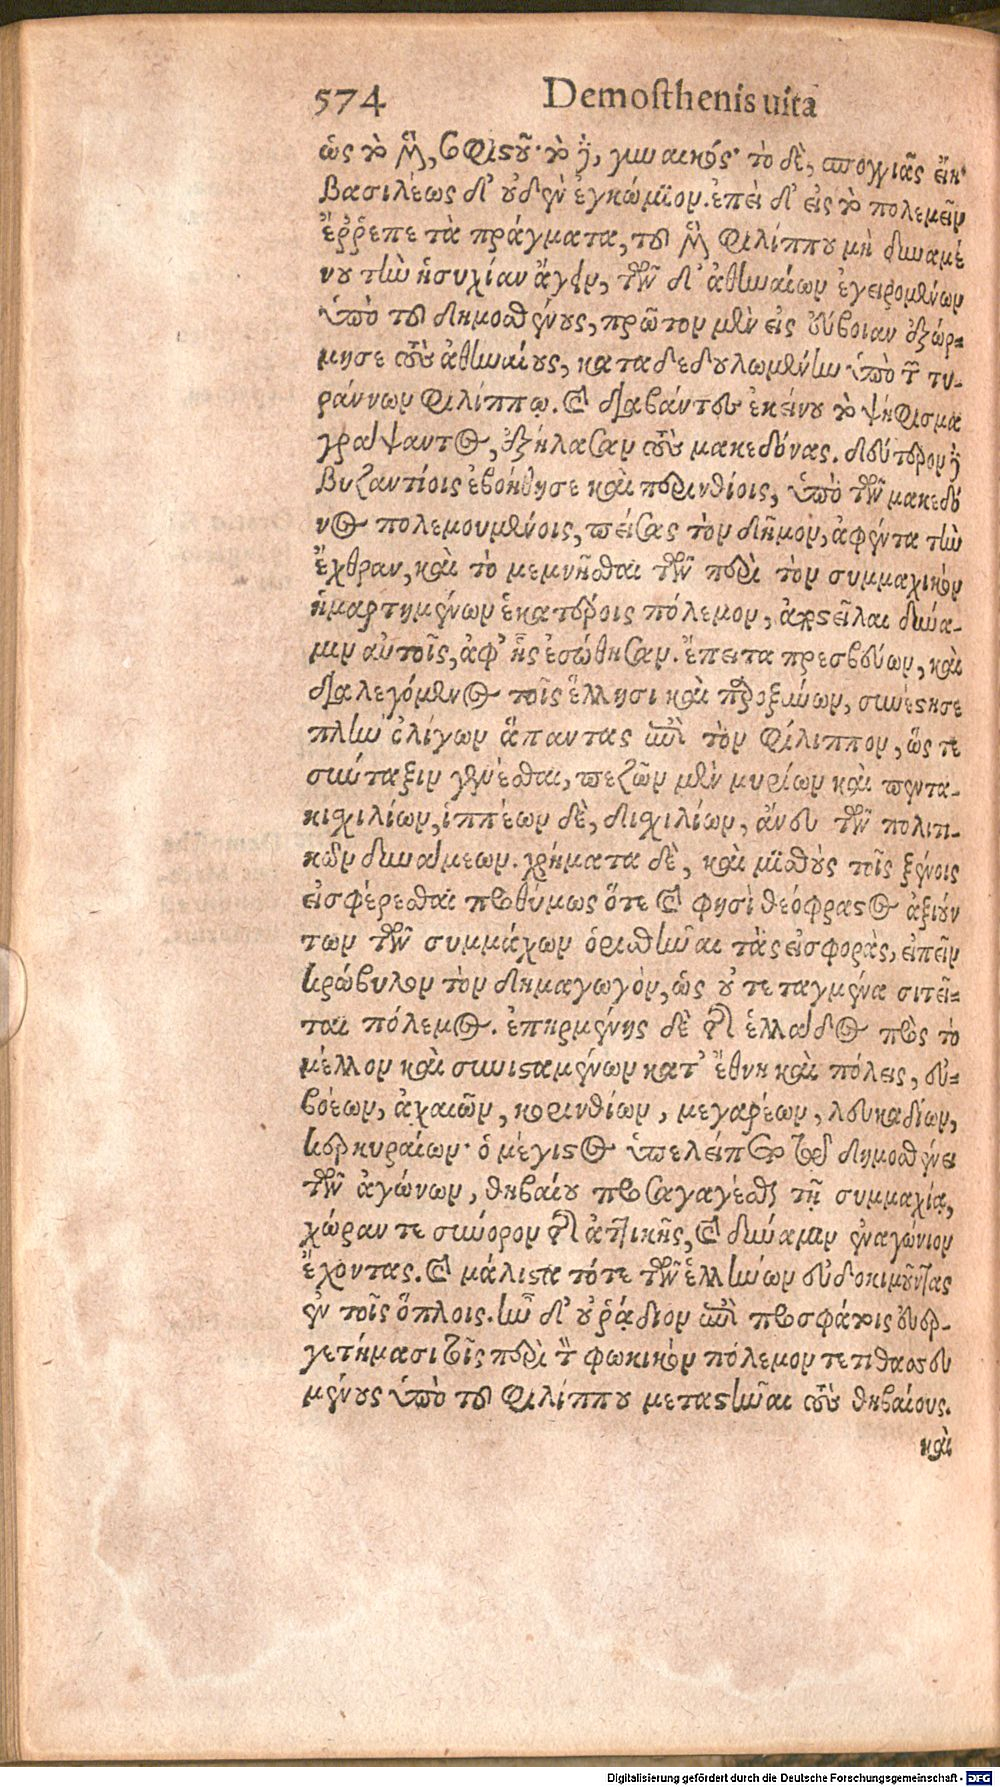 574 Demosthenis uita
ὡς τὸ μὲν, σοφιστοῦ· τὸ δὲ, γυναικός· τὸ δὲ, σπογγιᾶς εἶν'
βασιλέως δ' οὐδὲν ἐγκώμιον. ἐπεὶ δ' εἰς τὸ πολεμεῖν
ἔῤῥεπε τὰ πράγματα, τοῦ μὲν φιλίππου μὴ δυναμέ
νου τὴν ἡσυχίαν ἄγειν, τῶν δ' ἀθηναίων ἐγειρομένων
ὑπὸ τοῦ δημοσθένους, πρῶτον μὲν εἰς εὔβοιαν ἐξώρ-
μησε τοὺς ἀθηναίους, καταδεδουλωμένην ὑπὸ τῶν τυ-
ράννων φιλίππῳ. καὶ διαβάντες ἐκείνου τὸ ψήφισμα
γράψαντος, ἐξήλασαν τοὺς μακεδόνας. δεύτερον δὲ
βυζαντίοις ἐβοήθησε καὶ περινθίοις, ὑπὸ τῶν μακεδό
νος πολεμουμένοις, πείσας τὸν δῆμον, ἀφέντα τὴν
ἔχθραν, καὶ τὸ μεμνῆσθαι τῶν περὶ τὸν συμμαχικὸν
ἡμαρτημένων ἑκατέροις πόλεμον, ἀποστεῖλαι δύνα-
μιν αὐτοῖς, ἀφ' ἧς ἐσώθησαν. ἔπειτα πρεσβεύων, καὶ
διαλεγόμενος τοῖς ἕλλησι καὶ παροξύνων, συνέστησε
πλὴν ὀλίγων ἅπαντας ἐπὶ τὸν φίλιππον, ὥς τε
σύνταξιν γενέσθαι, πεζῶν μὲν μυρίων καὶ πεντα-
κισχιλίων, ἱππέων δὲ, δισχιλίων, ἄνευ τῶν πολιτι-
κῶν δυνάμεων. χρήματα δὲ, καὶ μισθοὺς τοῖς ξένοις
εἰσφέρεσθαι προθύμως ὅτε καὶ φησὶ θεόφραστος ἀξιούν
των τῶν συμμάχων ὁρισθῆναι τὰς εἰσφορὰς, εἰπεῖν
κρώβυλον τὸν δημαγωγὸν, ὡς οὐ τεταγμένα σιτεῖ-
ται πόλεμος. ἐπηρμένης δὲ τῆς ἑλλάδος πρὸς τὸ
μέλλον καὶ συνισταμένων κατ' ἔθνη καὶ πόλεις, εὐ-
βοέων, ἀχαιῶν, κορινθίων, μεγαρέων, λευκαδίων,
κερκυραίων· ὁ μέγιστος ὑπελείπετο τῷ δημοσθένει
τῶν ἀγώνων, θηβαίου προσαγαγέσθαι τῇ συμμαχίᾳ,
χώραν τε σύνορον τῆς ἀττικῆς, καὶ δύναμιν ἐναγώνιον
ἔχοντας. καὶ μάλιστα τότε τῶν ἑλλήνων εὐδοκιμοῦντας
ἐν τοῖς ὅπλοις. ἦν δ' οὐ ῥᾴδιον ἐπὶ προσφάτοις εὐερ-
γετήμασι τοῖς περὶ τὸν φωκικὸν πόλεμον τετιθασσευ
μένους ὑπὸ τοῦ φιλίππου μεταστῆναι τοὺς θηβαίους.
καὶ
Digitalisierung gefördert durch die Deutsche Forschungsgemeinschaft - DFG